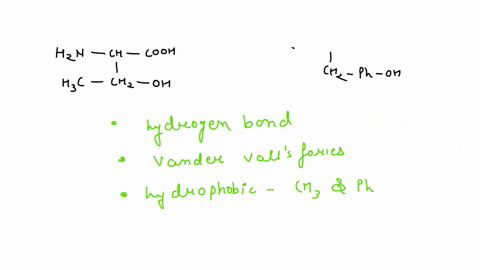 H₂N - CH - COOH
H₃C - CH₂ - OH
CH₂ - Ph - OH
• hydrogen bond
• vander vall's fories
• hydrophobic - CH₃ & Ph